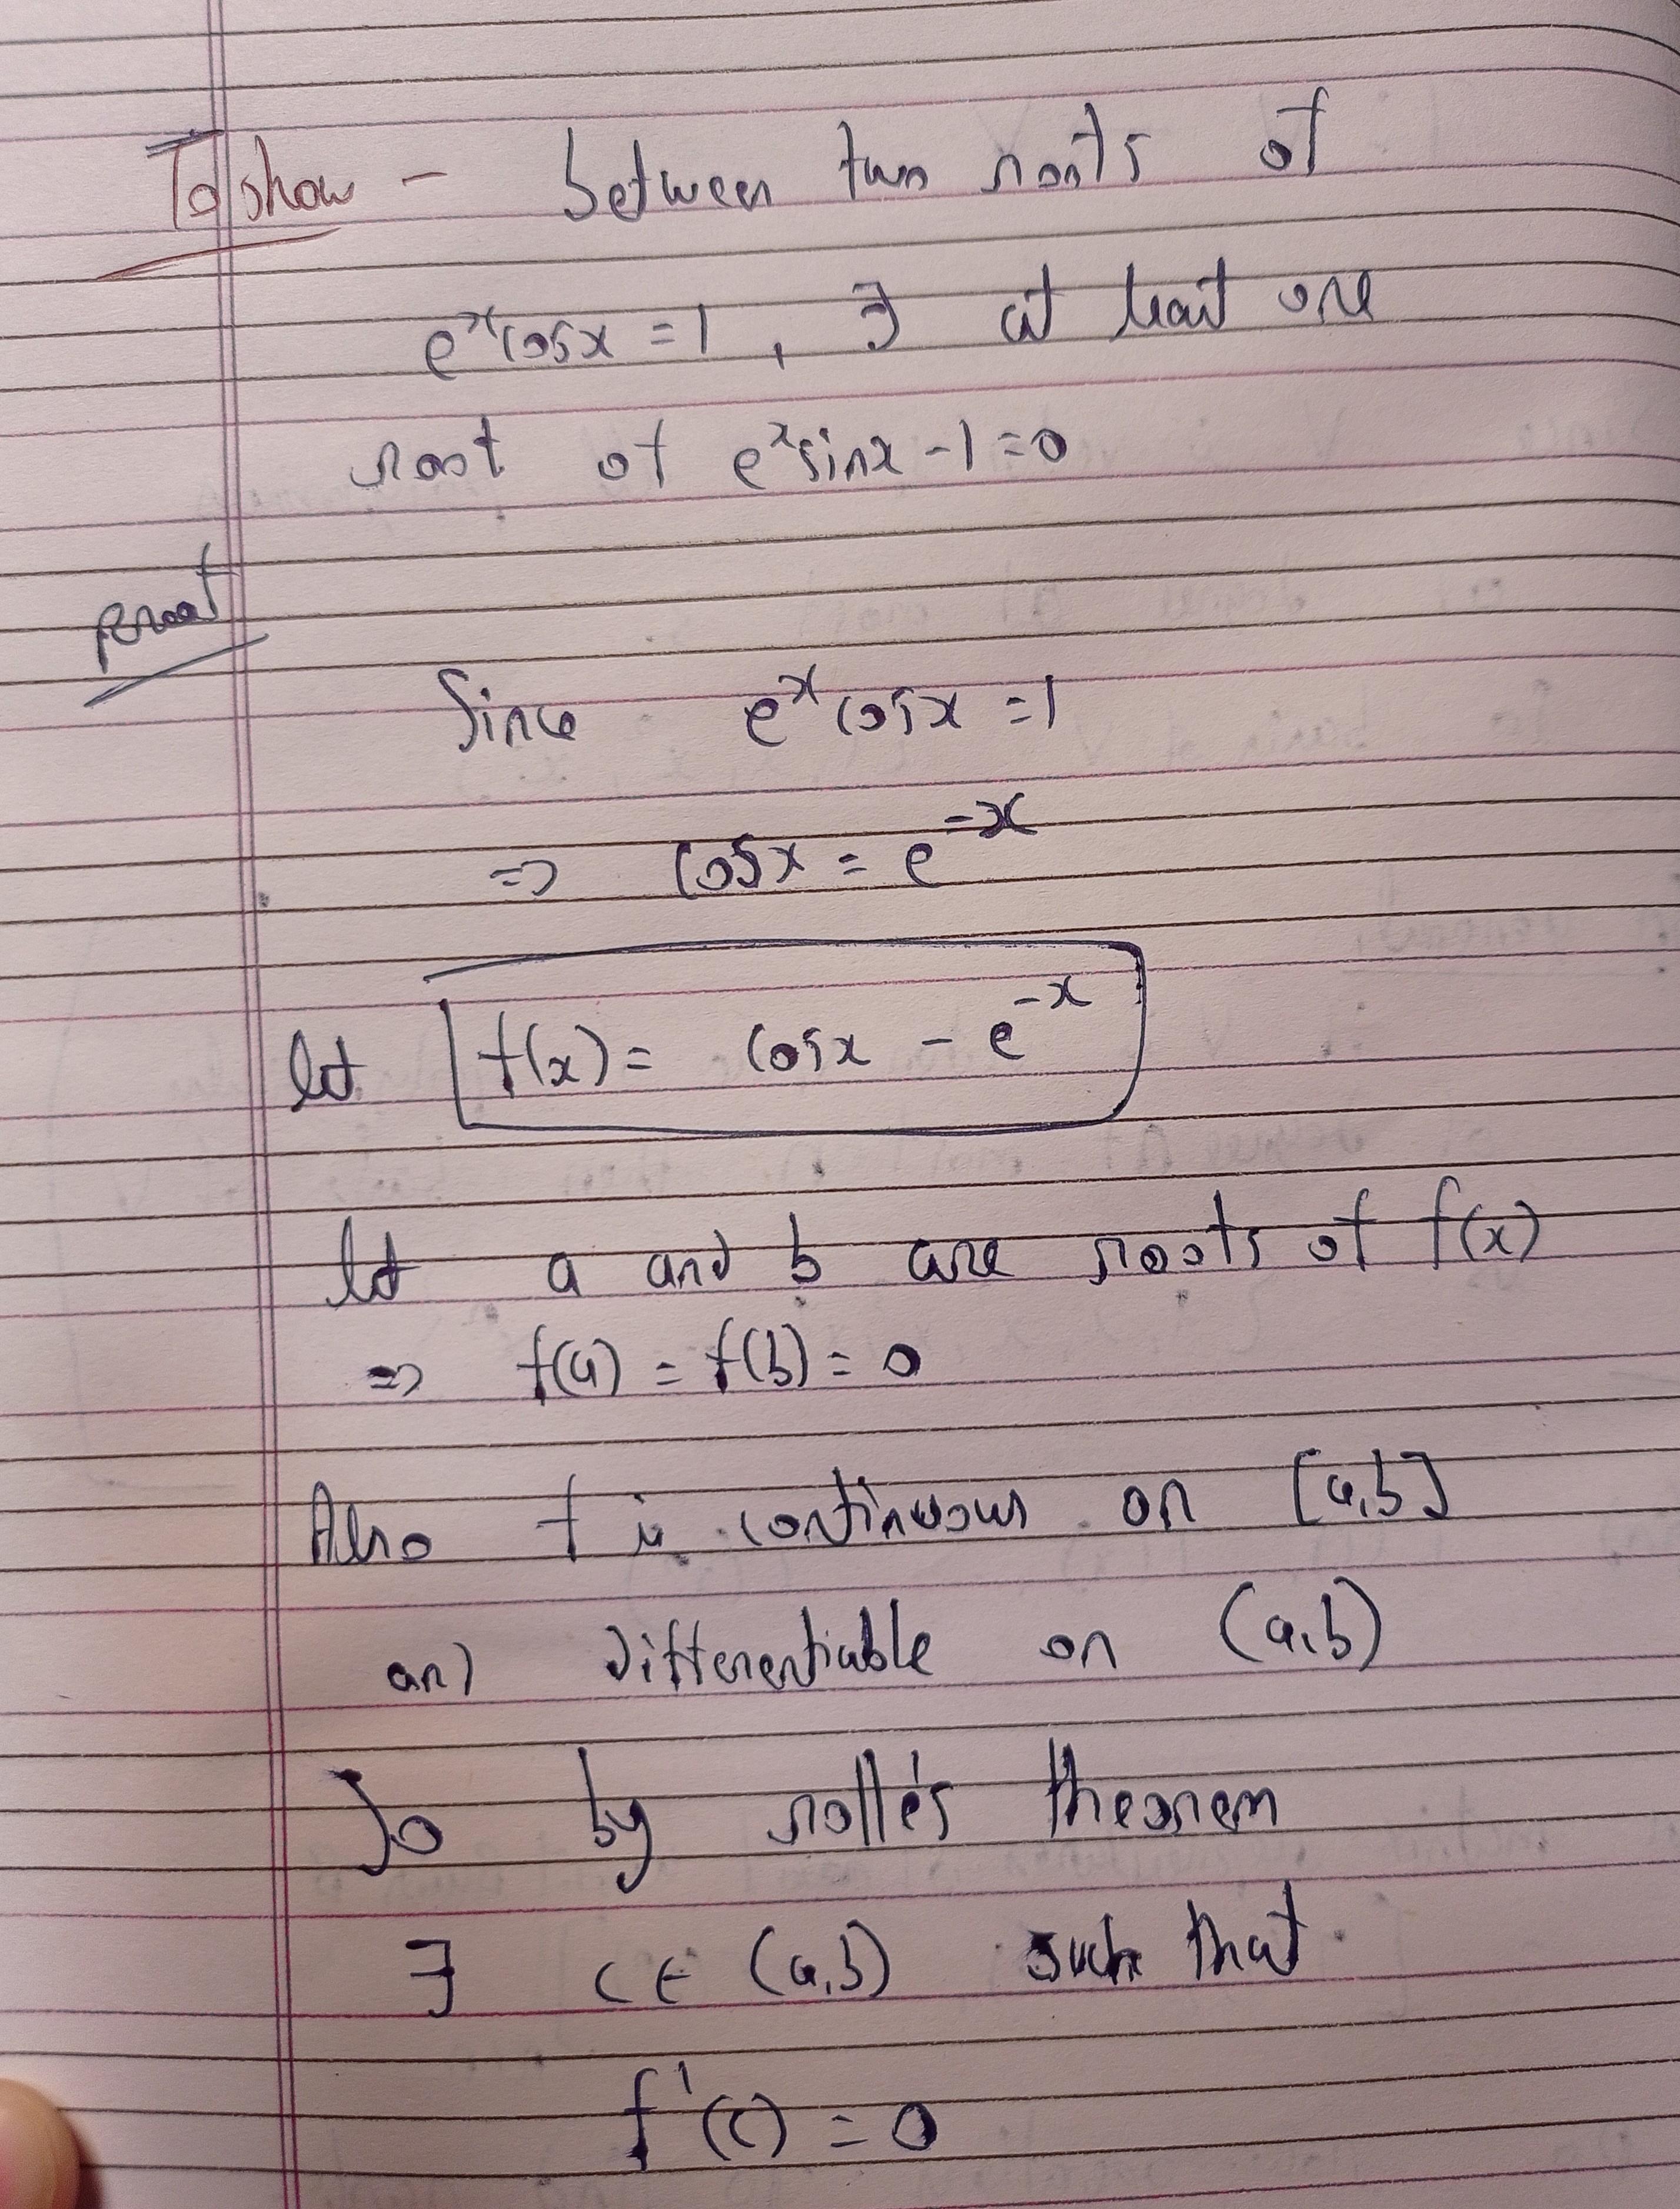 To show - between two roots of
e^x cosx = 1 , ∃ at least one
root of e^x sinx - 1 = 0
proof
Since e^x cosx = 1
⇒ cosx = e^-x
let f(x) = cosx - e^-x
let a and b are roots of f(x)
⇒ f(a) = f(b) = 0
Also f is continuous on [a,b]
and differentiable on (a,b)
So by rolle's theorem
∃ c ∈ (a,b) such that
f'(c) = 0